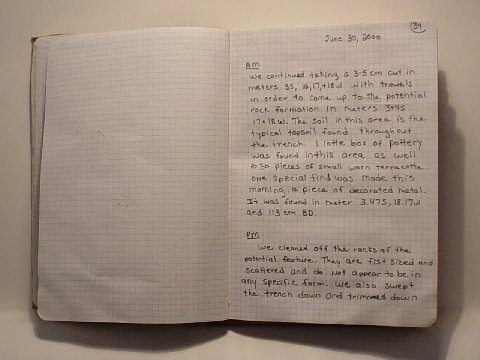 39
June 30, 2000
AM
We continued taking a 3-5 cm cut in
meters 3S, 16,17,+18W with trowels
in order to come up to the potential
rock formation in meters 3+4S
17+18W. The soil in this area is the
typical topsoil found throughout
the trench. 1 latte box of pottery
was found in this area as well
30 pieces of small worn terracotta.
One special find was made this
morning, a piece of decorated metal.
It was found in meter 3.47S, 18.17W
and 113 cm BD.
PM
We cleaned off the rocks of the
potential feature. They are fist sized and
scattered and do not appear to be in
any specific form. We also swept
the trench down and trimmed down